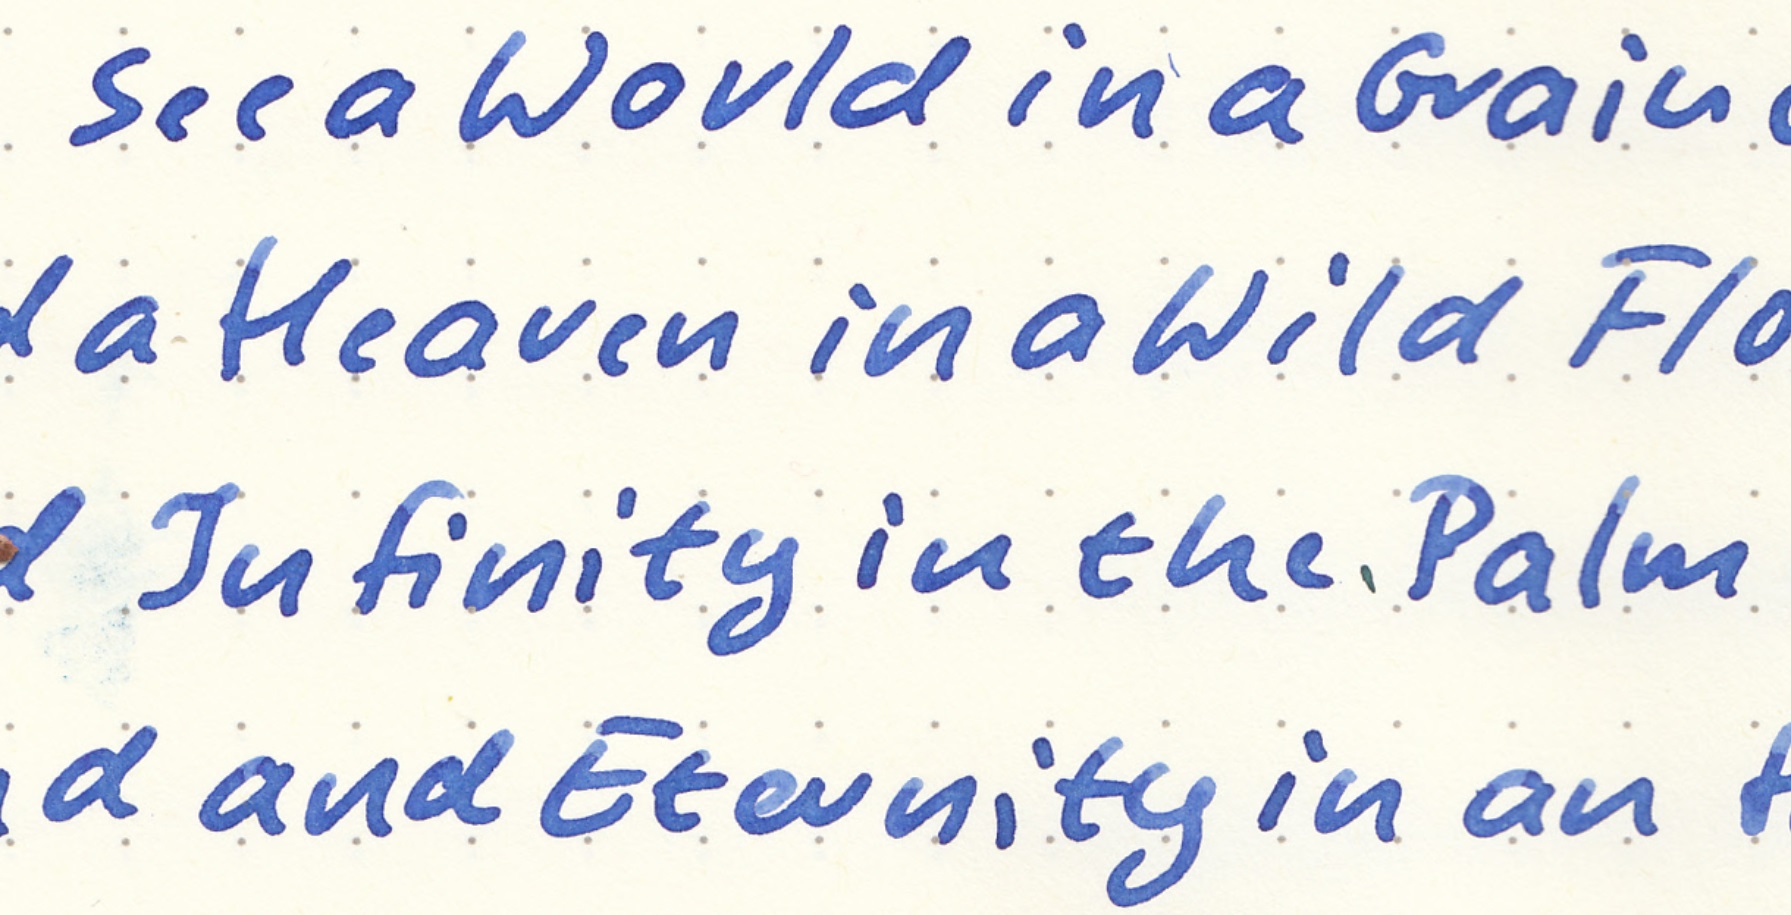 See a World in a Grain
d a Heaven in a Wild Flo
d Infinity in the Palm
nd and Eternity in an H